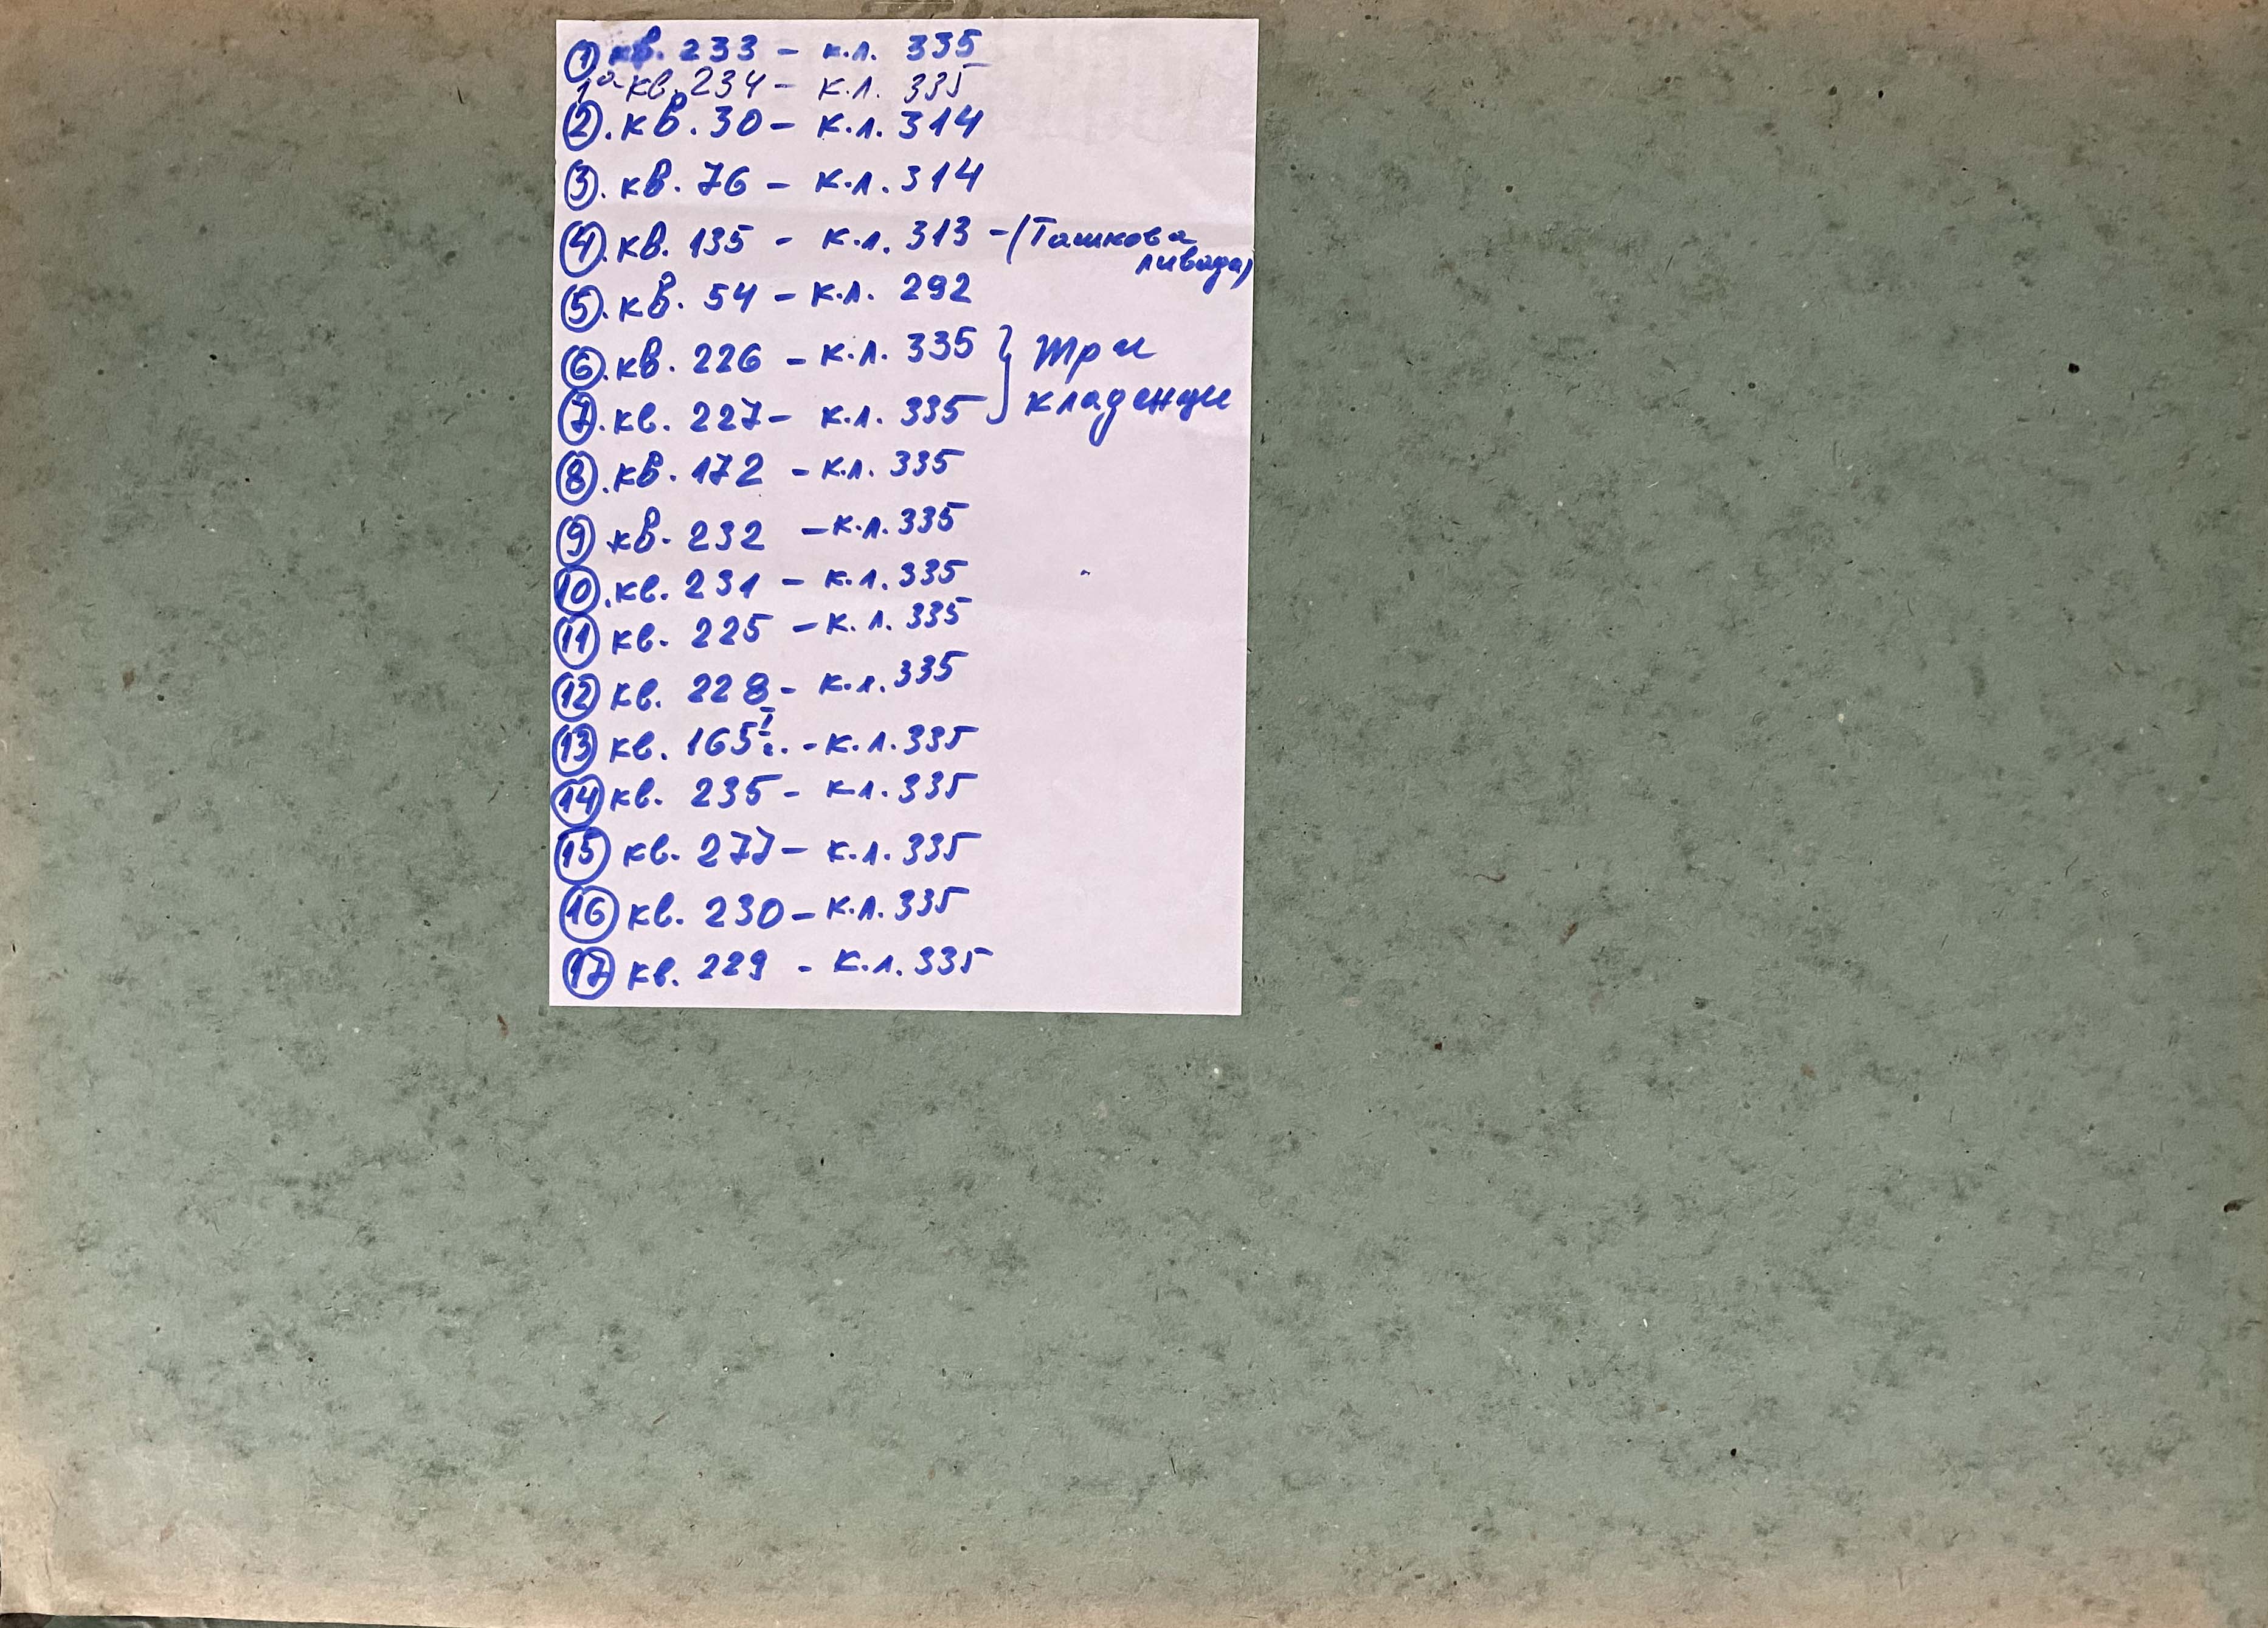 ① кв. 233 – к.л. 335
1а кв. 234 – к.л. 335
②. кв. 30 – к.л. 314
③. кв. 76 – к.л. 314
④. кв. 135 – к.л. 313 – (Ташкова
ливада)
⑤. кв. 54 – к.л. 292
⑥. кв. 226 – к.л. 335 } три
⑦. кв. 227 – к.л. 335 кладенци
⑧. кв. 172 – к.л. 335
⑨ кв. 232 – к.л. 335
⑩. кв. 231 – к.л. 335
⑪ кв. 225 – к.л. 335
⑫ кв. 228 – к.л. 335
⑬ кв. 165 – к.л. 335
⑭ кв. 235 – к.л. 335
⑮ кв. 277 – к.л. 335
⑯ кв. 230 – к.л. 335
⑰ кв. 229 – к.л. 335